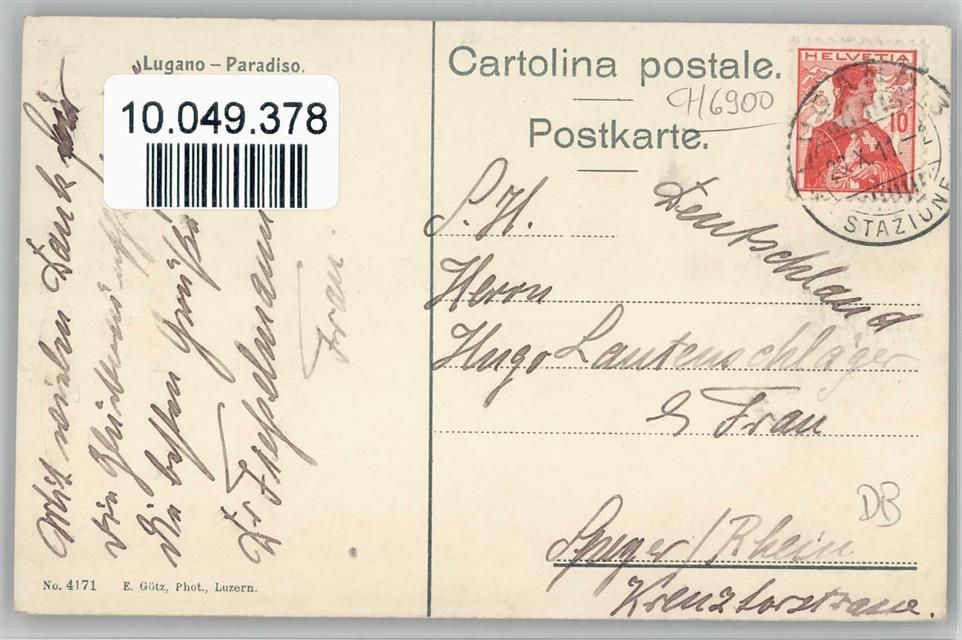 Lugano – Paradiso.
10.049.378
Mit vielen Dank für
die besten Grüße
Dr
Frau.
No. 4171 E. Götz, Phot., Luzern.
Cartolina postale.
CH6900
Postkarte.
HELVETIA
10
STAZIONE
Deutschland
S. H.
Herrn
Hugo Lautenschläger
& Frau
DB
Speyer / Rhein
Kreuztorstrasse.